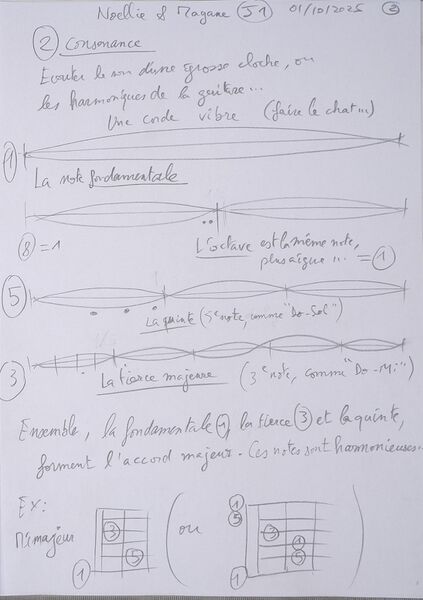 Noellie & Magane S1 01/10/2025 3
2 Consonance
Ecouter le son d'une grosse cloche, ou
les harmoniques de la guitare...
Une corde vibre (faire le chat...)
1
La note fondamentale
8 = 1 L'octave est la même note,
plus aigue... = 1
5
La quinte (5e note, comme "Do-Sol")
3
La tierce majeure (3e note, comme "Do-Mi"...)
Ensemble, la fondamentale 1, la tierce 3 et la quinte,
forment l'accord majeur. Ces notes sont harmonieuses..
Ex:
Mi majeur
3
5
1
( ou
1
5
3
1
5
1
)